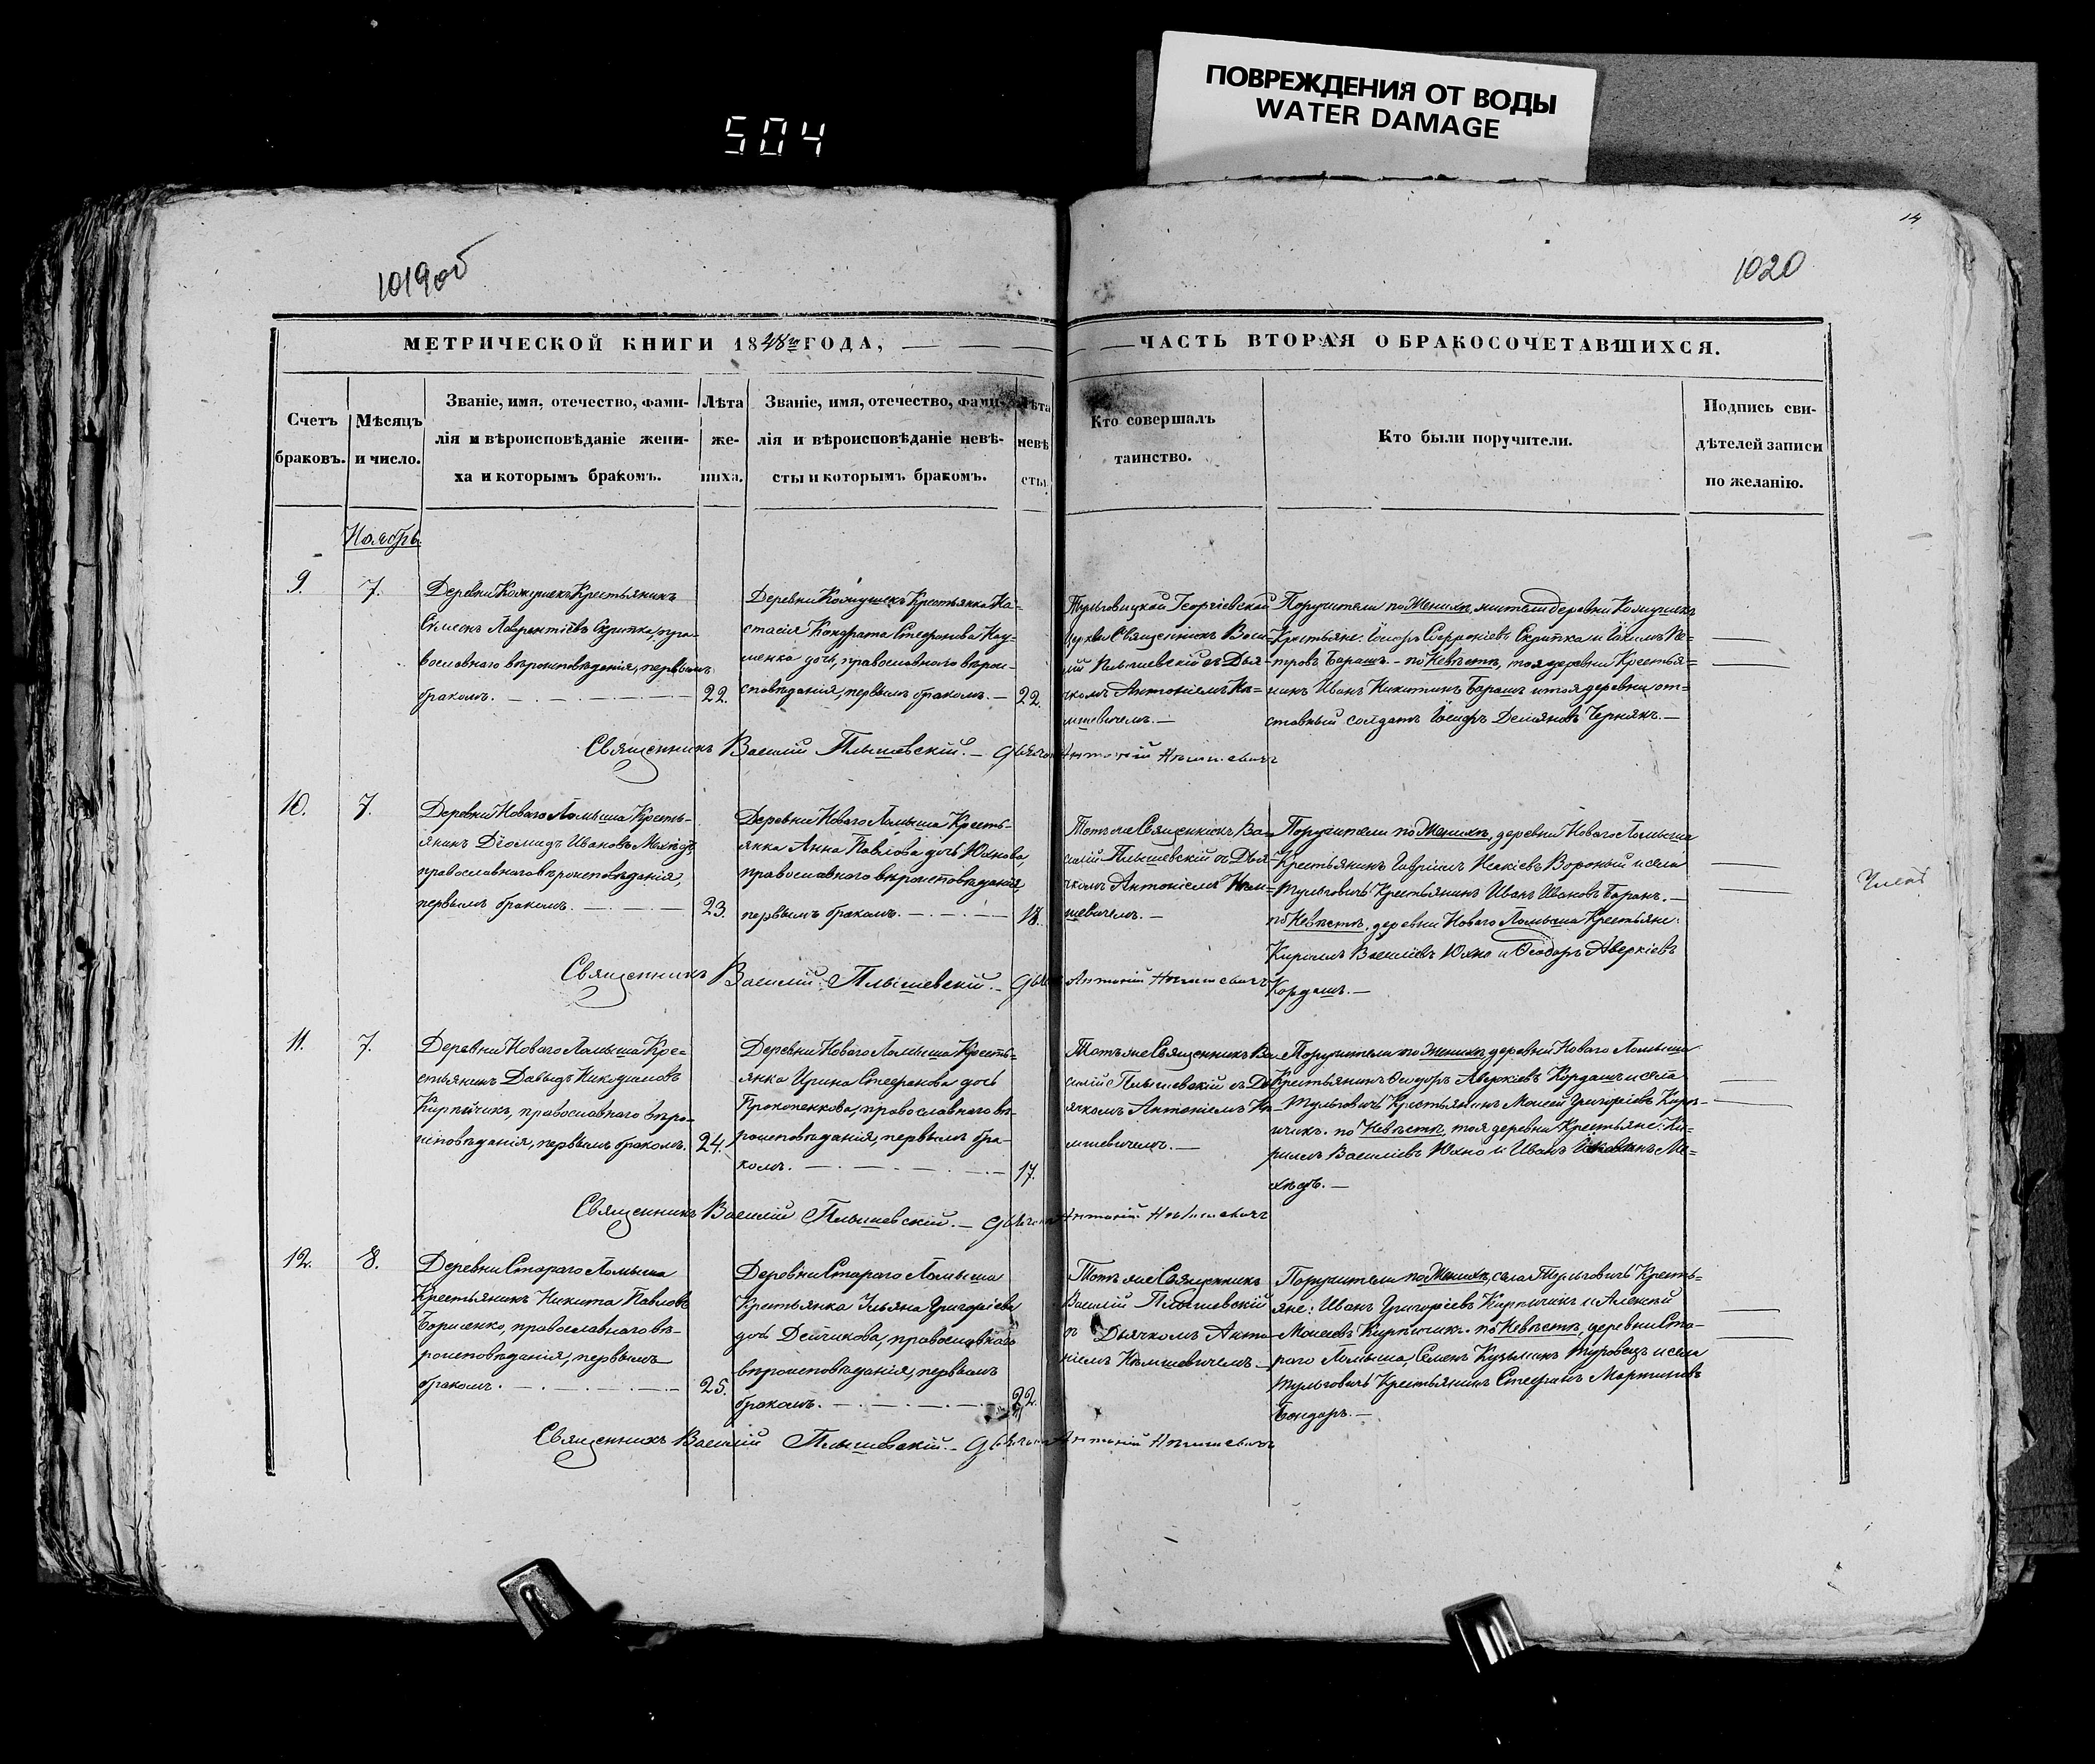 ПОВРЕЖДЕНИЯ ОТ ВОДЫ
WATER DAMAGE
504
14
1019об
1020
МЕТРИЧЕСКОЙ КНИГИ 1848го ГОДА,
ЧАСТЬ ВТОРАЯ О БРАКОСОЧЕТАВШИХСЯ.
Счетъ
браковъ.
Мѣсяцъ
и число.
Званіе, имя, отечество, фами-
лія и вѣроисповѣданіе жени-
ха и которымъ бракомъ.
Лѣта
же-
ниха.
Званіе, имя, отечество, фами-
лія и вѣроисповѣданіе невѣ-
сты и которымъ бракомъ.
Лѣта
невѣ
сты.
Кто совершалъ
таинство.
Кто были поручители.
Подпись сви-
дѣтелей записи
по желанію.
Ноябрь
9.
7.
Деревни Кожушекъ Крестьянинъ
Симеонъ Лаврентіевъ Скрипка, пра-
вославнаго вѣроисповѣданія, первымъ
бракомъ.
22.
Деревни Кожушекъ Крестьянка На-
стасія Кондрата Стефанова Нау-
менка дочь, православнаго вѣрои-
сповѣданія, первымъ бракомъ.
22.
Тульговицкой Георгіевской
Церкви Священникъ Васи-
лій Плышевскій съ Дья-
чкомъ Антоніемъ Нѣ-
мшевичемъ.
Поручители по Женихѣ, жители деревни Кожушекъ
Крестьяне: Іосифъ Софроніевъ Скрипка и Іакимъ Пе-
тровъ Барашъ. - по Невѣстѣ, тоя деревни Крестья-
нинъ Иванъ Никитинъ Барашъ и тоя деревни от-
ставный солдатъ Іосифъ Демяновъ Чернякъ.
Священникъ Василій Плышевскій. Дьячокъ Антоній Нѣмшевичъ
10.
7.
Деревни Новаго Ломыша Кресть-
янинъ Діомидъ Ивановъ Мехѣдъ,
православнаго вѣроисповѣданія,
первымъ бракомъ.
23.
Деревни Новаго Ломыша Кресть-
янка Анна Павлова дочь Юхнова,
православнаго вѣроисповѣданія,
первымъ бракомъ.
18.
Тотъ же Священникъ Ва-
силій Плышевскій съ Дья-
чкомъ Антоніемъ Нѣм-
шевичемъ.
Поручители по Женихѣ, деревни Новаго Ломыша
Крестьянинъ Гавріилъ Вороный и села
Тульговичъ Крестьянинъ Иванъ Ивановъ Баранъ.
по Невѣстѣ, деревни Новаго Ломыша Крестьяне:
Кириллъ Василіевъ Юхно и Ѳеодоръ Аверкіевъ
Кордашъ.
Священникъ Василій Плышевскій. Дьячокъ Антоній Нѣмшевичъ
11.
7.
Деревни Новаго Ломыша Кре-
стьянинъ Давыдъ Никодимовъ
Кирпичикъ, православнаго вѣро-
исповѣданія, первымъ бракомъ.
24.
Деревни Новаго Ломыша Кресть-
янка Ирина Стефанова дочь
Прокопенкова, православнаго вѣ-
роисповѣданія, первымъ бра-
комъ.
17.
Тотъ же Священникъ Ва-
силій Плышевскій съ Дь-
ячкомъ Антоніемъ Нѣ-
мшевичемъ.
Поручители по Женихѣ, деревни Новаго Ломыша
Крестьянинъ Ѳеодоръ Аверкіевъ Кордашъ и села
Тульговичъ Крестьянинъ Моисей Григоріевъ Кирп-
ичикъ. по Невѣстѣ, тоя деревни Крестьяне: Ки-
риллъ Василіевъ Юхно и Иванъ Ме-
хѣдъ.
Священникъ Василій Плышевскій. Дьячокъ Антоній Нѣмшевичъ
12.
8.
Деревни Стараго Ломыша
Крестьянинъ Никита Павловъ
Борисенко, православнаго вѣ-
роисповѣданія, первымъ
бракомъ.
25.
Деревни Стараго Ломыша
Крестьянка Ульяна Григоріева
дочь Дейчикова, православнаго
вѣроисповѣданія, первымъ
бракомъ.
22.
Тотъ же Священникъ
Василій Плышевскій
съ Дьячкомъ Анто-
ніемъ Нѣмшевичемъ
Поручители по Женихѣ, села Тульговичъ Кресть-
яне: Иванъ Григоріевъ Кирпичикъ и Алексій
Моисеевъ Кирпичикъ. по Невѣстѣ, деревни Ста-
раго Ломыша, Семенъ Кузьминъ Туровецъ и села
Тульговичъ Крестьянинъ Стефанъ Мартиновъ
Бондарь.
Священникъ Василій Плышевскій. Дьячокъ Антоній Нѣмшевичъ